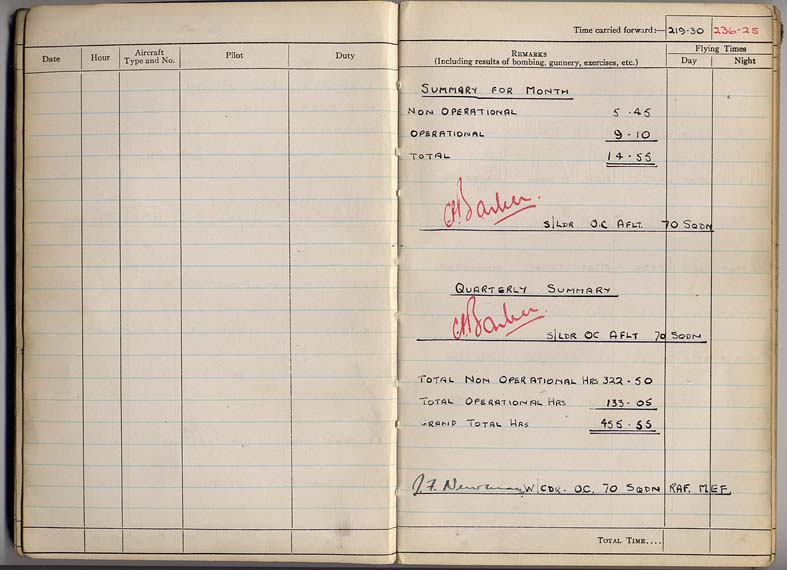 Date Hour Aircraft Type and No. Pilot Duty
Time carried forward:— 219·30 236-25
REMARKS
(Including results of bombing, gunnery, exercises, etc.)
Flying Times
Day Night
SUMMARY FOR MONTH
NON OPERATIONAL 5·45
OPERATIONAL 9·10
TOTAL 14·55
Barker.
S/LDR O.C AFLT. 70 SQDN
QUARTERLY SUMMARY
Barker.
S/LDR OC AFLT 70 SQDN
TOTAL NON OPERATIONAL HRS 322·50
TOTAL OPERATIONAL HRS 133·05
GRAND TOTAL HRS 455·55
J.F. Newman W/CDR. O.C. 70 SQDN RAF. MEF.
TOTAL TIME....